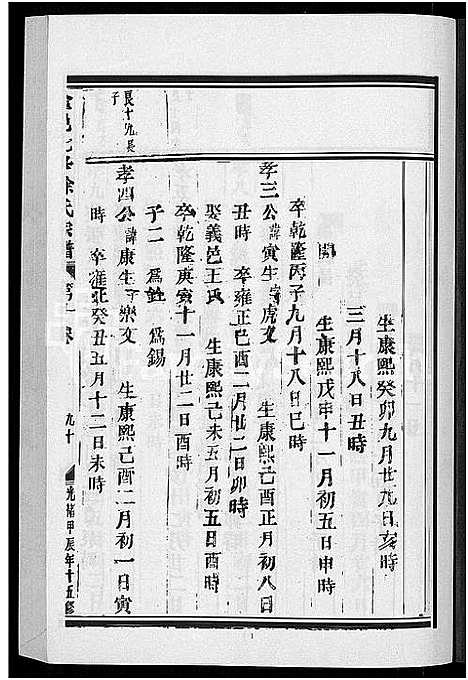 生康熙癸卯九月廿九日亥時
三月十八日丑時
關　生康熙戊申十一月初五日申時
卒乾隆丙子九月十八日巳時
孝三公諱寅生字虎文　生康熙己酉正月初八日
丑時　卒雍正己酉二月廿二日卯時
娶義邑王氏　生康熙己未五月初五日酉時
卒乾隆庚寅十一月廿二日酉時
子二　爲銓　爲錫
長十九長子
孝四公諱康生字樂文　生康熙己酉二月初一日寅
時　卒雍正癸丑五月十二日未時
徐氏宗譜　第十一卷　九十　光緒甲辰年十五修